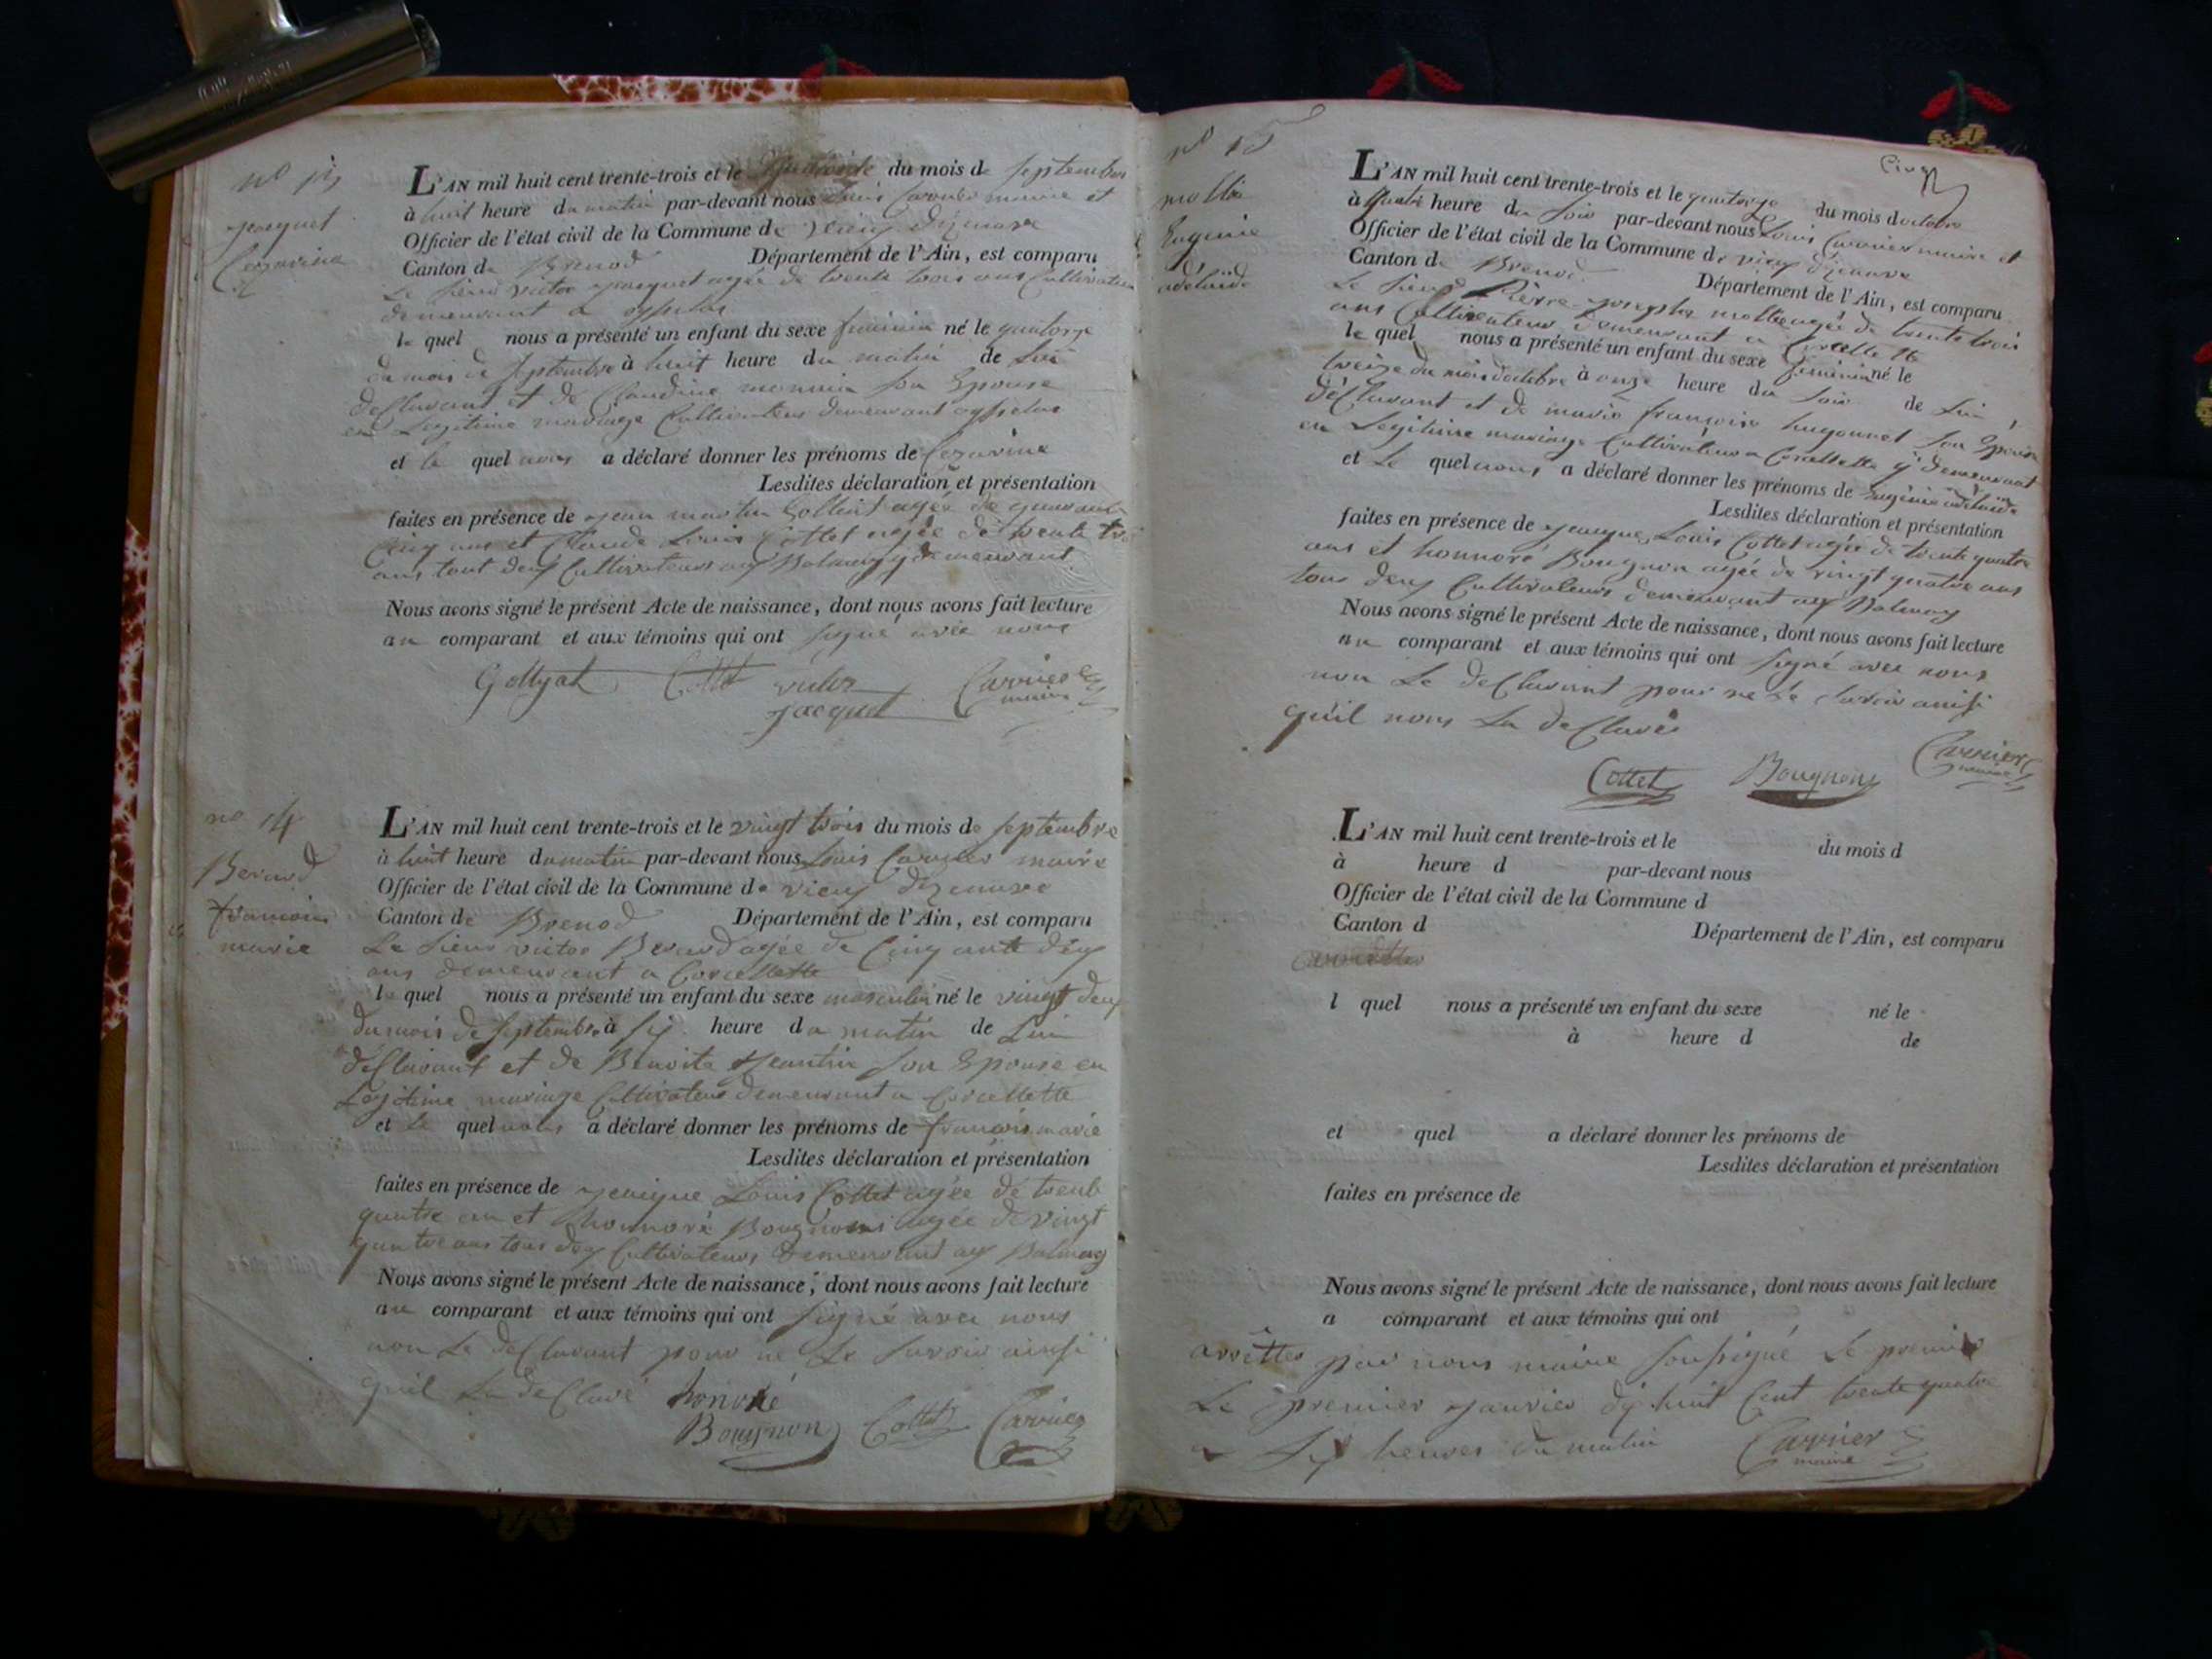 jacquet
Cezarine
L'AN mil huit cent trente-trois et le du mois de septembre
à huit heure du matin par-devant nous Louis Carrier maire et
Officier de l'état civil de la Commune de vieuy
Canton de Brenod Département de l'Ain, est comparu
Le sieur victor jacquet agée de trente trois ans Cultivateur
demeurant a
le quel nous a présenté un enfant du sexe feminin né le quatorze
du mois de septembre à huit heure du matin de lui
declarant et de Claudine monnin son Epouse
en Legitime mariage Cultivateurs demeurant
et le quel nous a déclaré donner les prénoms de Cezarine
Lesdites déclaration et présentation
faites en présence de jean martin agée de quarante
Cinq ans et Claude Louis Cottet agée de trente
ans tout deux Cultivateurs aux Balmay y demeurant
Nous avons signé le présent Acte de naissance, dont nous avons fait lecture
au comparant et aux témoins qui ont signé avec nous
Cottet victor Carrier
jacquet maire
no 14
Berard
francois
marie
L'AN mil huit cent trente-trois et le vingt trois du mois de septembre
à huit heure du matin par-devant nous Louis Carrier maire
Officier de l'état civil de la Commune de vieuy
Canton de Brenod Département de l'Ain, est comparu
Le sieur victor Berard agée de Cinquante deux
ans demeurant a Corcellette
le quel nous a présenté un enfant du sexe masculin né le vingt deux
du mois de septembre à six heure du matin de Lui
déClarant et de Benoite jeantin son Epouse en
Legitime mariage Cultivateurs demeurant a Corcellette
et le quel nous a déclaré donner les prénoms de francois marie
Lesdites déclaration et présentation
faites en présence de Louis Cottet agée de trente
quatre an et honnoré Bougnon agée de vingt
quatre ans tous deux Cultivateurs demeurant aux Balmay
Nous avons signé le présent Acte de naissance, dont nous avons fait lecture
au comparant et aux témoins qui ont signé avec nous
non Le deClarant pour ne Le savoir ainsi
quil La deClaré honoré
Bougnon Cottet Carrier
no 15
mollie
Eugenie
adelaide
L'AN mil huit cent trente-trois et le quatorze du mois doctobre
à quatre heure du soir par-devant nous Louis Carrier maire et
Officier de l'état civil de la Commune de vieuy
Canton de Brenod Département de l'Ain, est comparu
Le sieur Pierre joseph mollie agée de trente trois
ans Cultivateur demeurant a
le quel nous a présenté un enfant du sexe feminin né le
treize du mois doctobre à onze heure du soir de Lui
déClarant et de marie françoise hugonnet son Epouse
en Legitime mariage Cultivateurs a Corcellette y demeurant
et Le quel nous a déclaré donner les prénoms de Eugénie adelaide
Lesdites déclaration et présentation
faites en présence de Louis Cottet agée de trente quatre
ans et honnoré Bougnon agée de vingt quatre ans
tous deux Cultivateurs demeurant aux Balmay
Nous avons signé le présent Acte de naissance, dont nous avons fait lecture
au comparant et aux témoins qui ont signé avec nous
non Le deClarant pour ne Le savoir ainsi
quil nous La deClaré
Cottet Bougnon Carrier
maire
L'AN mil huit cent trente-trois et le du mois d
à heure d par-devant nous
Officier de l'état civil de la Commune d
Canton d Département de l'Ain, est comparu
l quel nous a présenté un enfant du sexe né le
à heure d de
et quel a déclaré donner les prénoms de
Lesdites déclaration et présentation
faites en présence de
Nous avons signé le présent Acte de naissance, dont nous avons fait lecture
a comparant et aux témoins qui ont
arrêttes par nous maire soussigné Le premier
Le premier janvier dix huit Cent trente quatre
a six heures du matin Carrier
maire